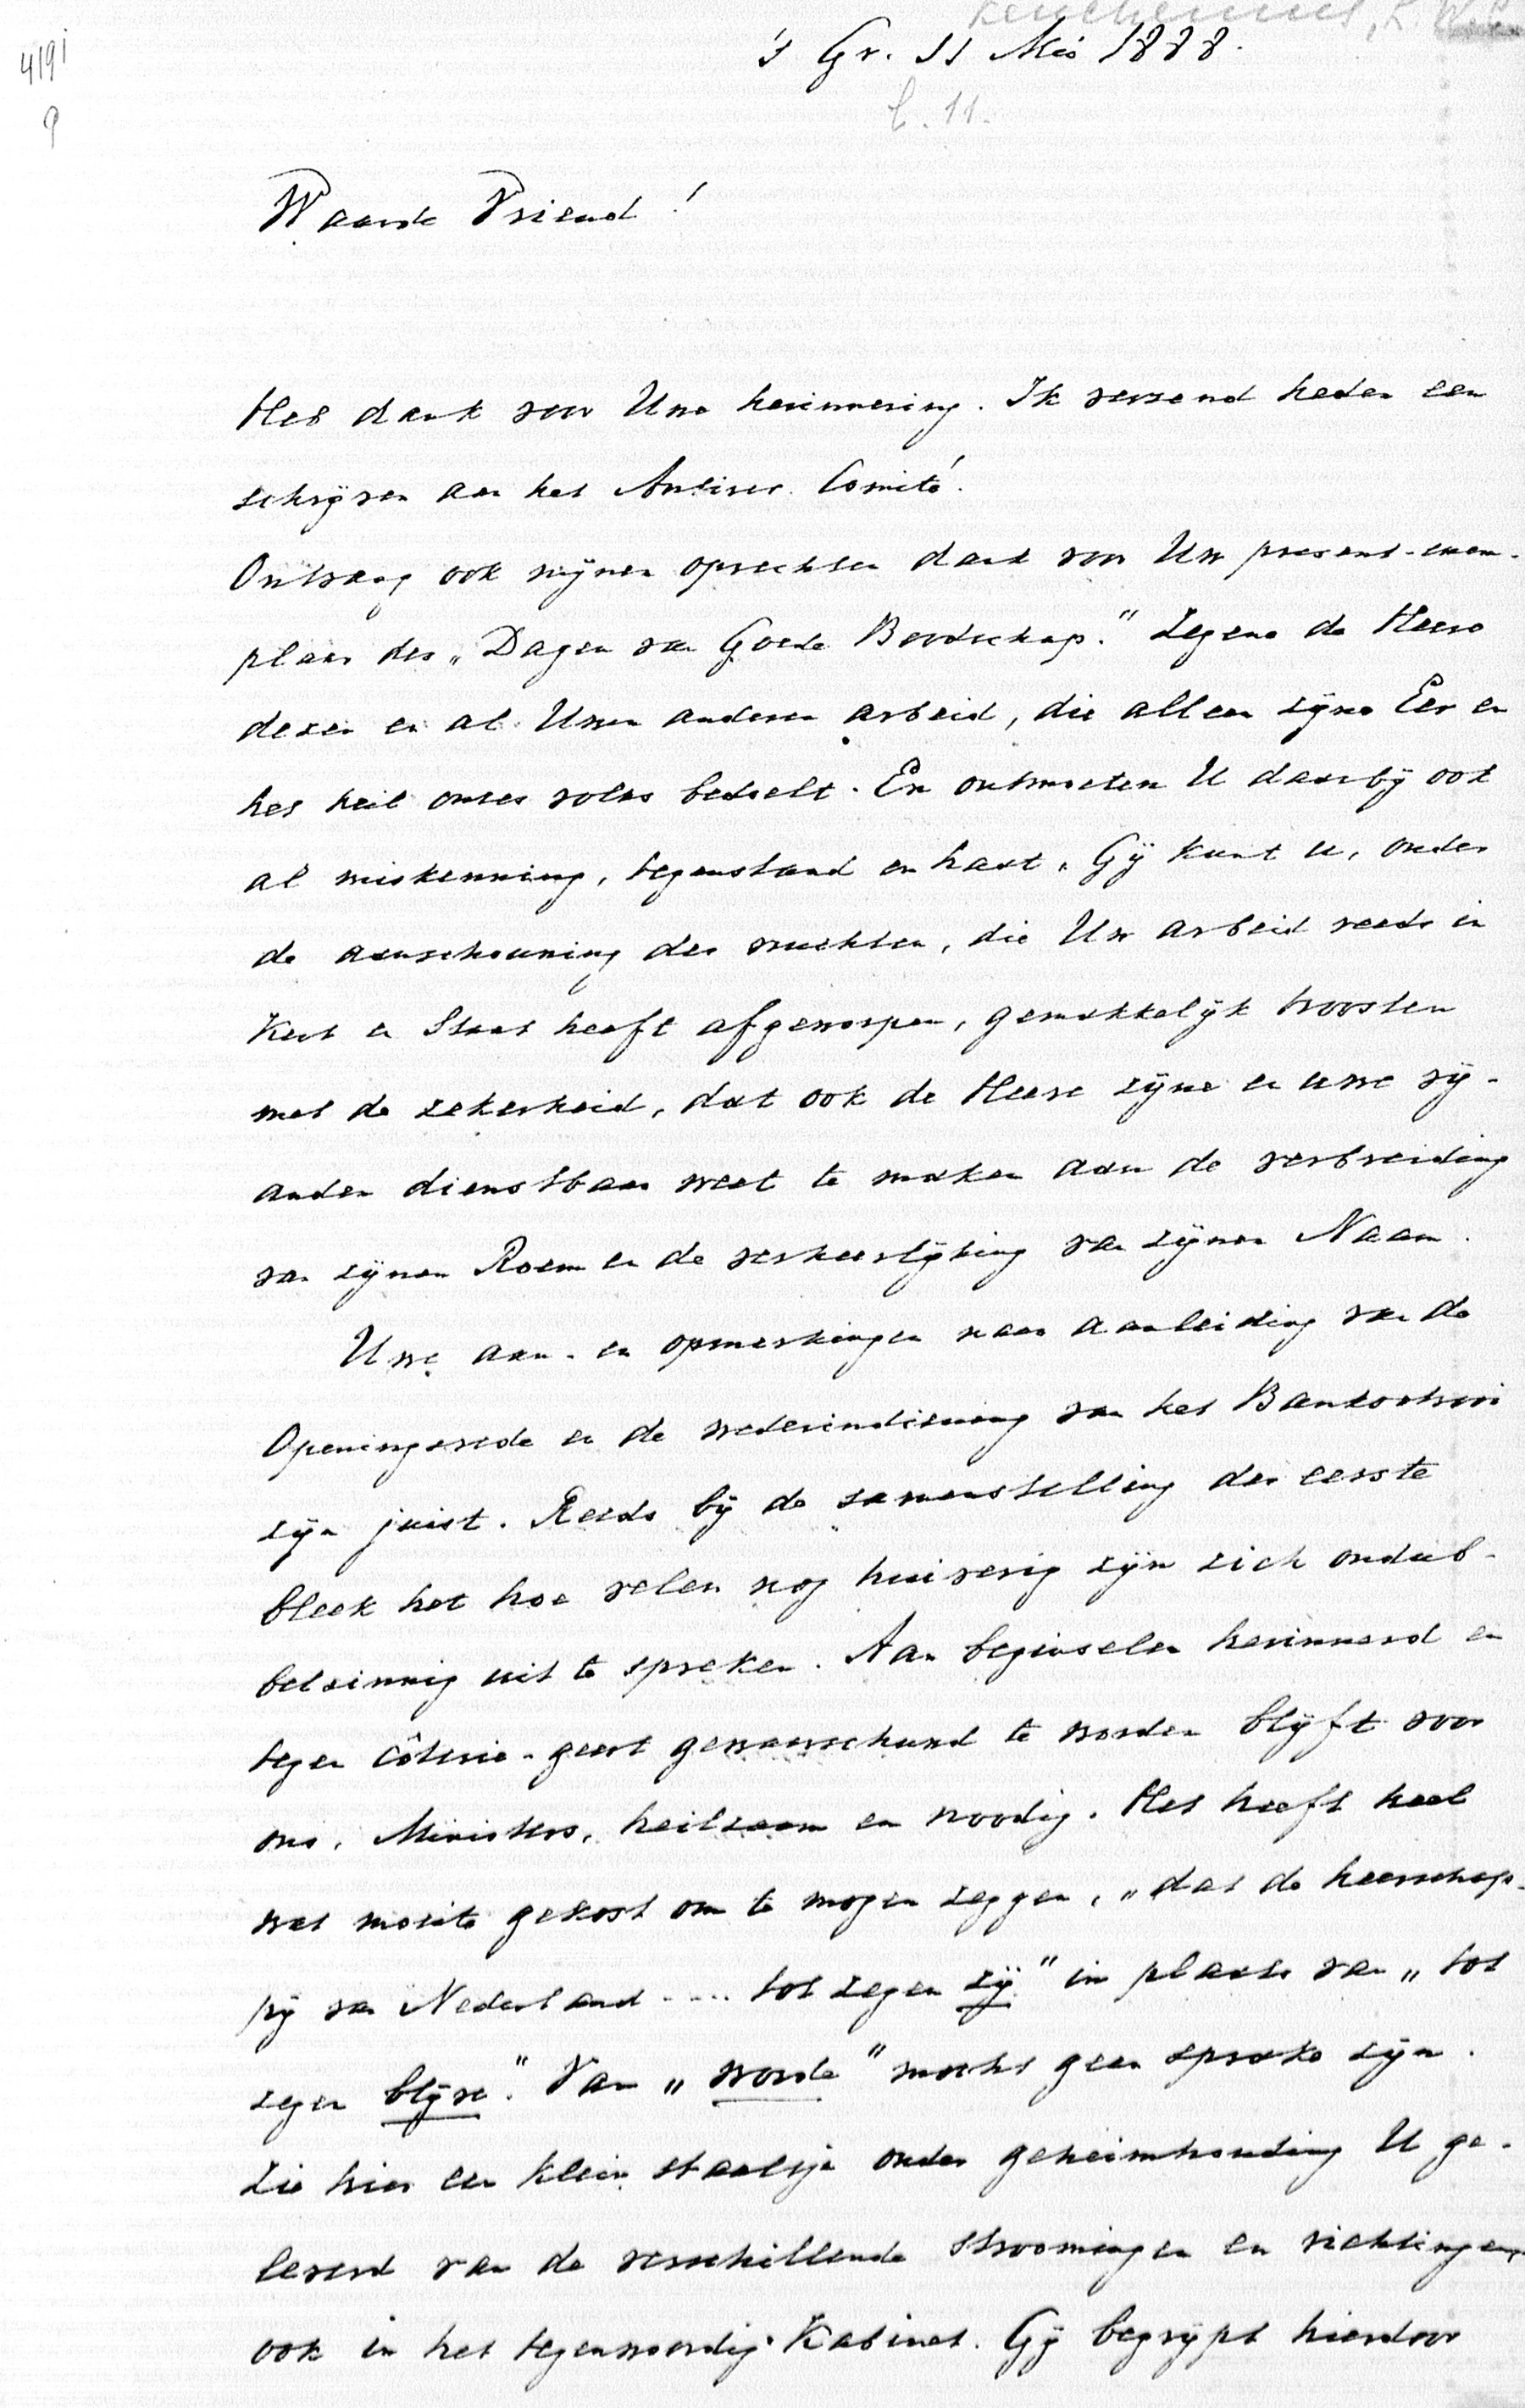 Keuchenius, L.W.C.
's Gr. 11 Mei 1888.
4191
9
b. 11.
Waarde Vriend!
Heb dank voor Uwe herinnering. Ik verzend heden een
schrijven aan het Antirev. Comité.
Ontvang ook mijnen oprechten dank voor Uw present-exem-
plaar der „Dagen van Goede Boodschap." Zegene de Heere
dezen en al Uwen anderen arbeid, die alleen Zijne Eer en
het heil onzes volks bedoelt. En ontmoeten U daarbij ook
al miskenning, tegenstand en haat, Gij kunt u, onder
de aanschouwing der vruchten, die Uw arbeid reeds in
Kerk en Staat heeft afgeworpen, gemakkelijk troosten
met de zekerheid, dat ook de Heere zijne en uwe vij-
anden dienstbaar weet te maken aan de verbreiding
van zijnen Roem en de verheerlijking van zijnen Naam.
Uwe aan- en opmerkingen naar aanleiding van de
Openingsrede en de wederindiening van het Bankoctrooi
zijn juist. Reeds bij de samenstelling der eerste
bleek het hoe velen nog huiverig zijn zich ondub-
belzinnig uit te spreken. Aan beginselen herinnerd en
tegen côterie-geest gewaarschuwd te worden blijft voor
ons, Ministers, heilzaam en noodig. Het heeft heel
wat moeite gekost om te mogen zeggen, „dat de heerschap-
pij van Nederland .... tot zegen zij" in plaats van „tot
zegen blijve". Van „worde" mocht geen sprake zijn.
Zie hier een klein staaltje onder geheimhouding U ge-
leverd van de verschillende stroomingen en richtingen
ook in het tegenwoordig Kabinet. Gij begrijpt hierdoor